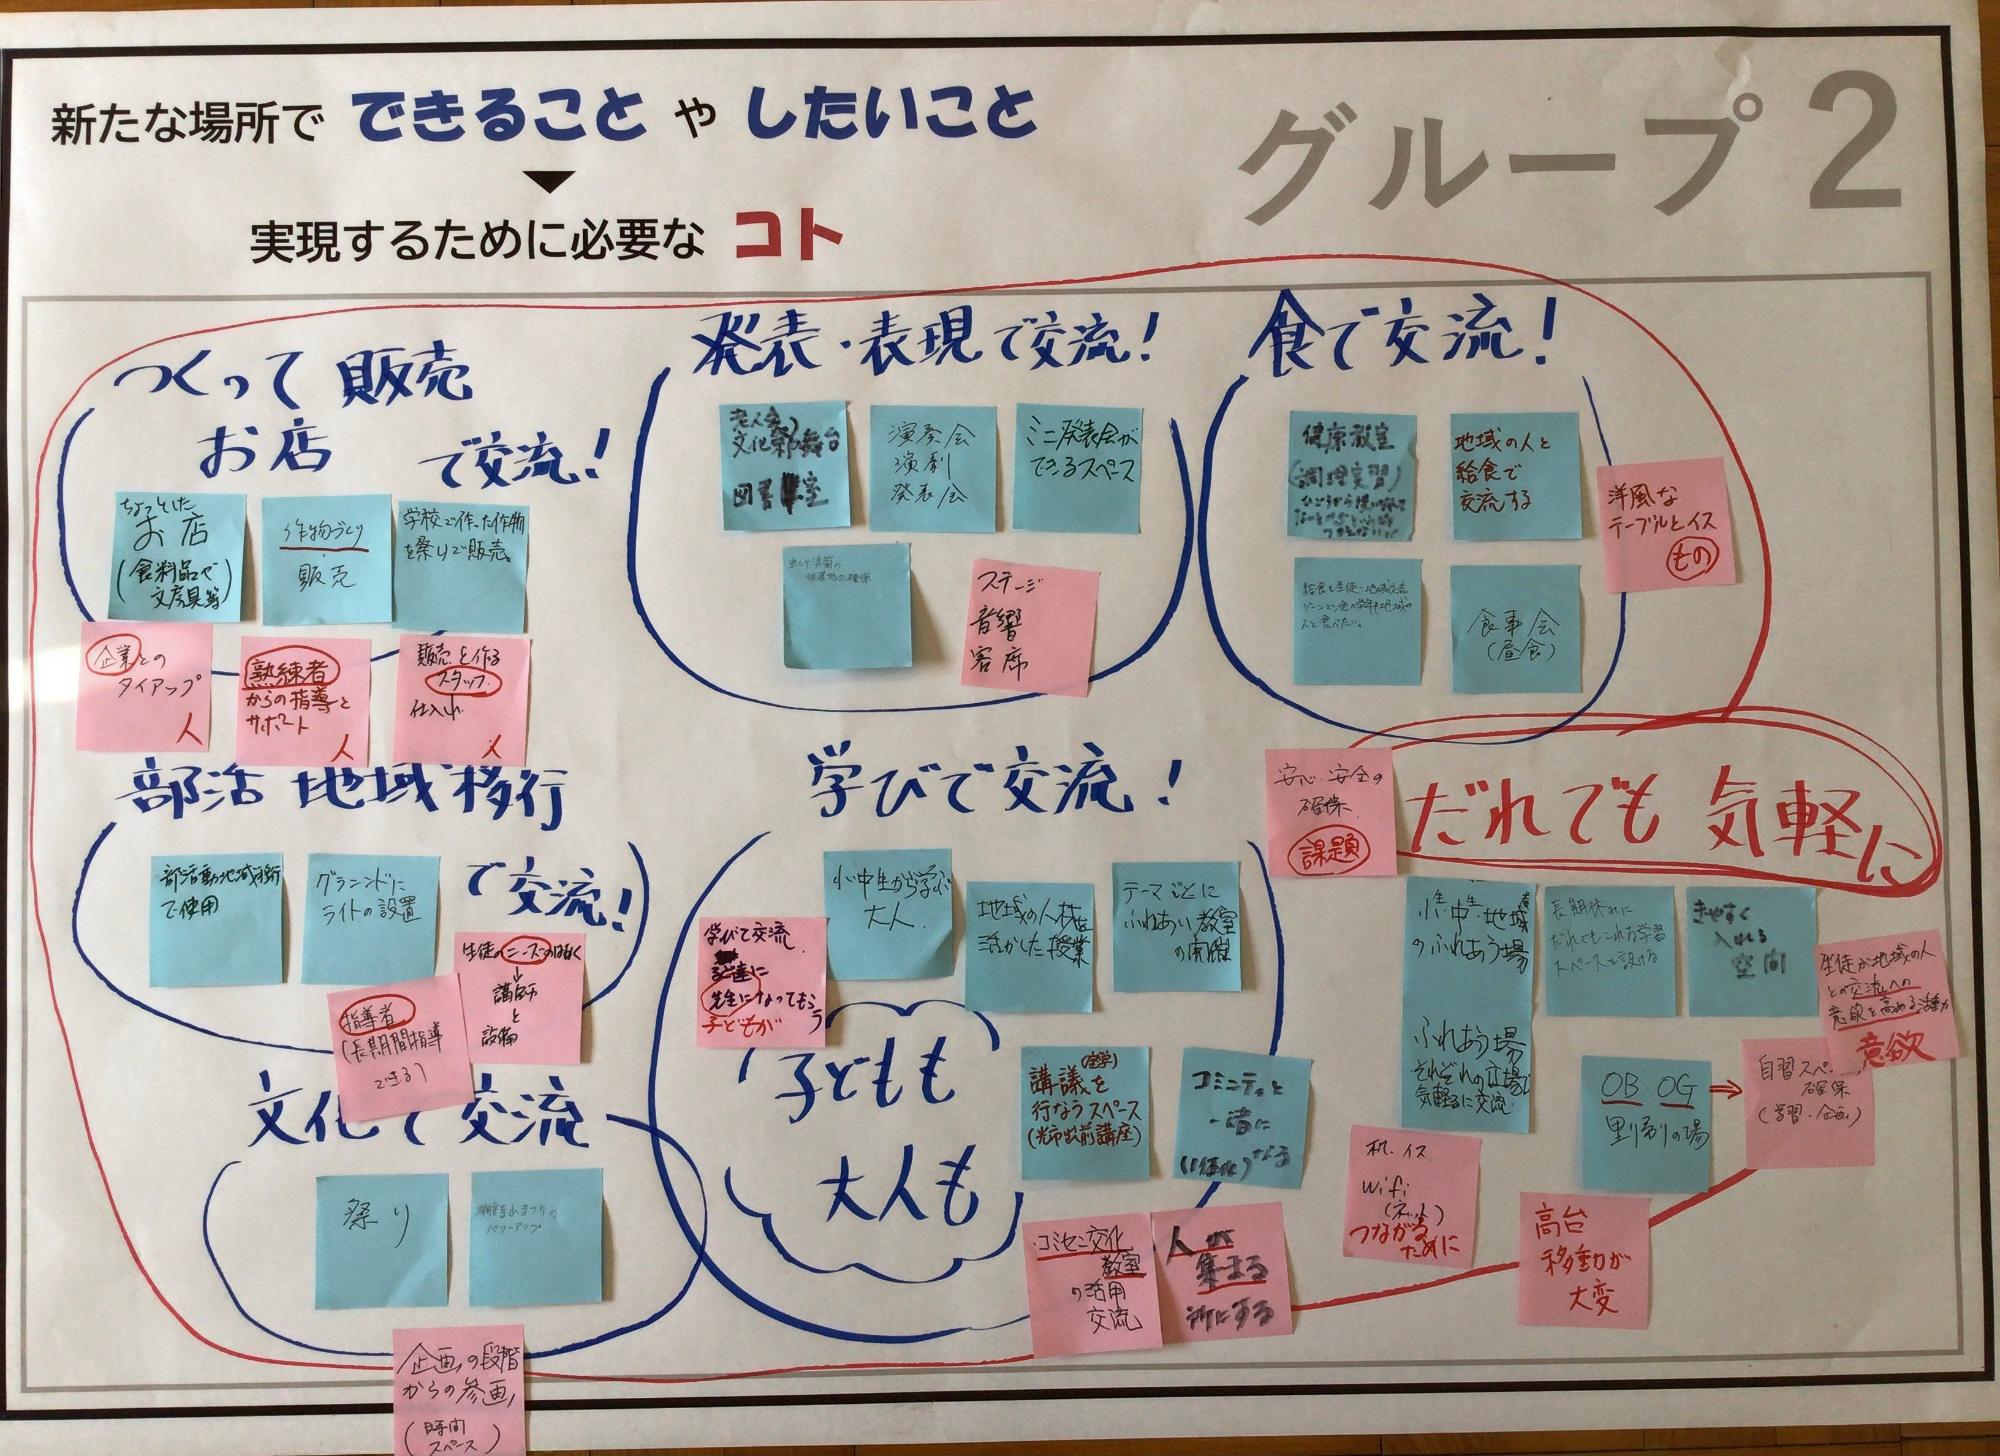 新たな場所で できること や したいこと
実現するために必要な コト
グループ 2
つくって 販売
お店 で交流!
ちょっとした
お店
(食料品や
文房具等)
作物づくり
・
販売
学校で作った作物
を祭りで販売。
企業との
タイアップ
人
熟練者
からの指導と
サポート
人
販売を作る
スタッフ
仕入れ
人
発表・表現で交流!
老人会
文化祭の舞台
図書室
演奏会
演劇
発表会
ミニ発表会が
できるスペース
ステージ
音響
客席
食で交流!
健康教室
(調理実習)
地域の人と
給食で
交流する
食事会
(昼食)
洋風な
テーブルとイス
もの
部活 地域移行
で交流!
部活動地域移行
で使用
グラウンドに
ライトの設置
生徒のニーズのはあく
↓
講師
と
設備
指導者
(長期間指導
できる)
文化で交流
祭り
企画の段階
からの参画
(時間
スペース)
学びで交流!
小中生から学ぶ
大人
地域の人材を
活かした授業
テーマごとに
ふれあい教室
の開催
学びで交流
子ども達に
先生になってもらう
子どもが
子どもも
大人も
講議(座学)を
行なうスペース
(光市出前講座)
コミニティと
一緒に
なる
コミセン文化
教室
の活用
交流
人が
集まる
所にする
安心・安全の
確保
課題
だれでも 気軽に
小・中・地域
のふれあう場
ふれあう場
それぞれの立場で
気軽るに交流
長期休みに
だれでもこれる学習
スペースを設ける
きやすく
入れる
空間
生徒が地域の人
との交流への
意欲を高める活動
意欲
OB・OG →
自習スペース
確保
(学習・企画)
机・イス
wifi
(ネット)
つながる
ために
高台
移動が
大変